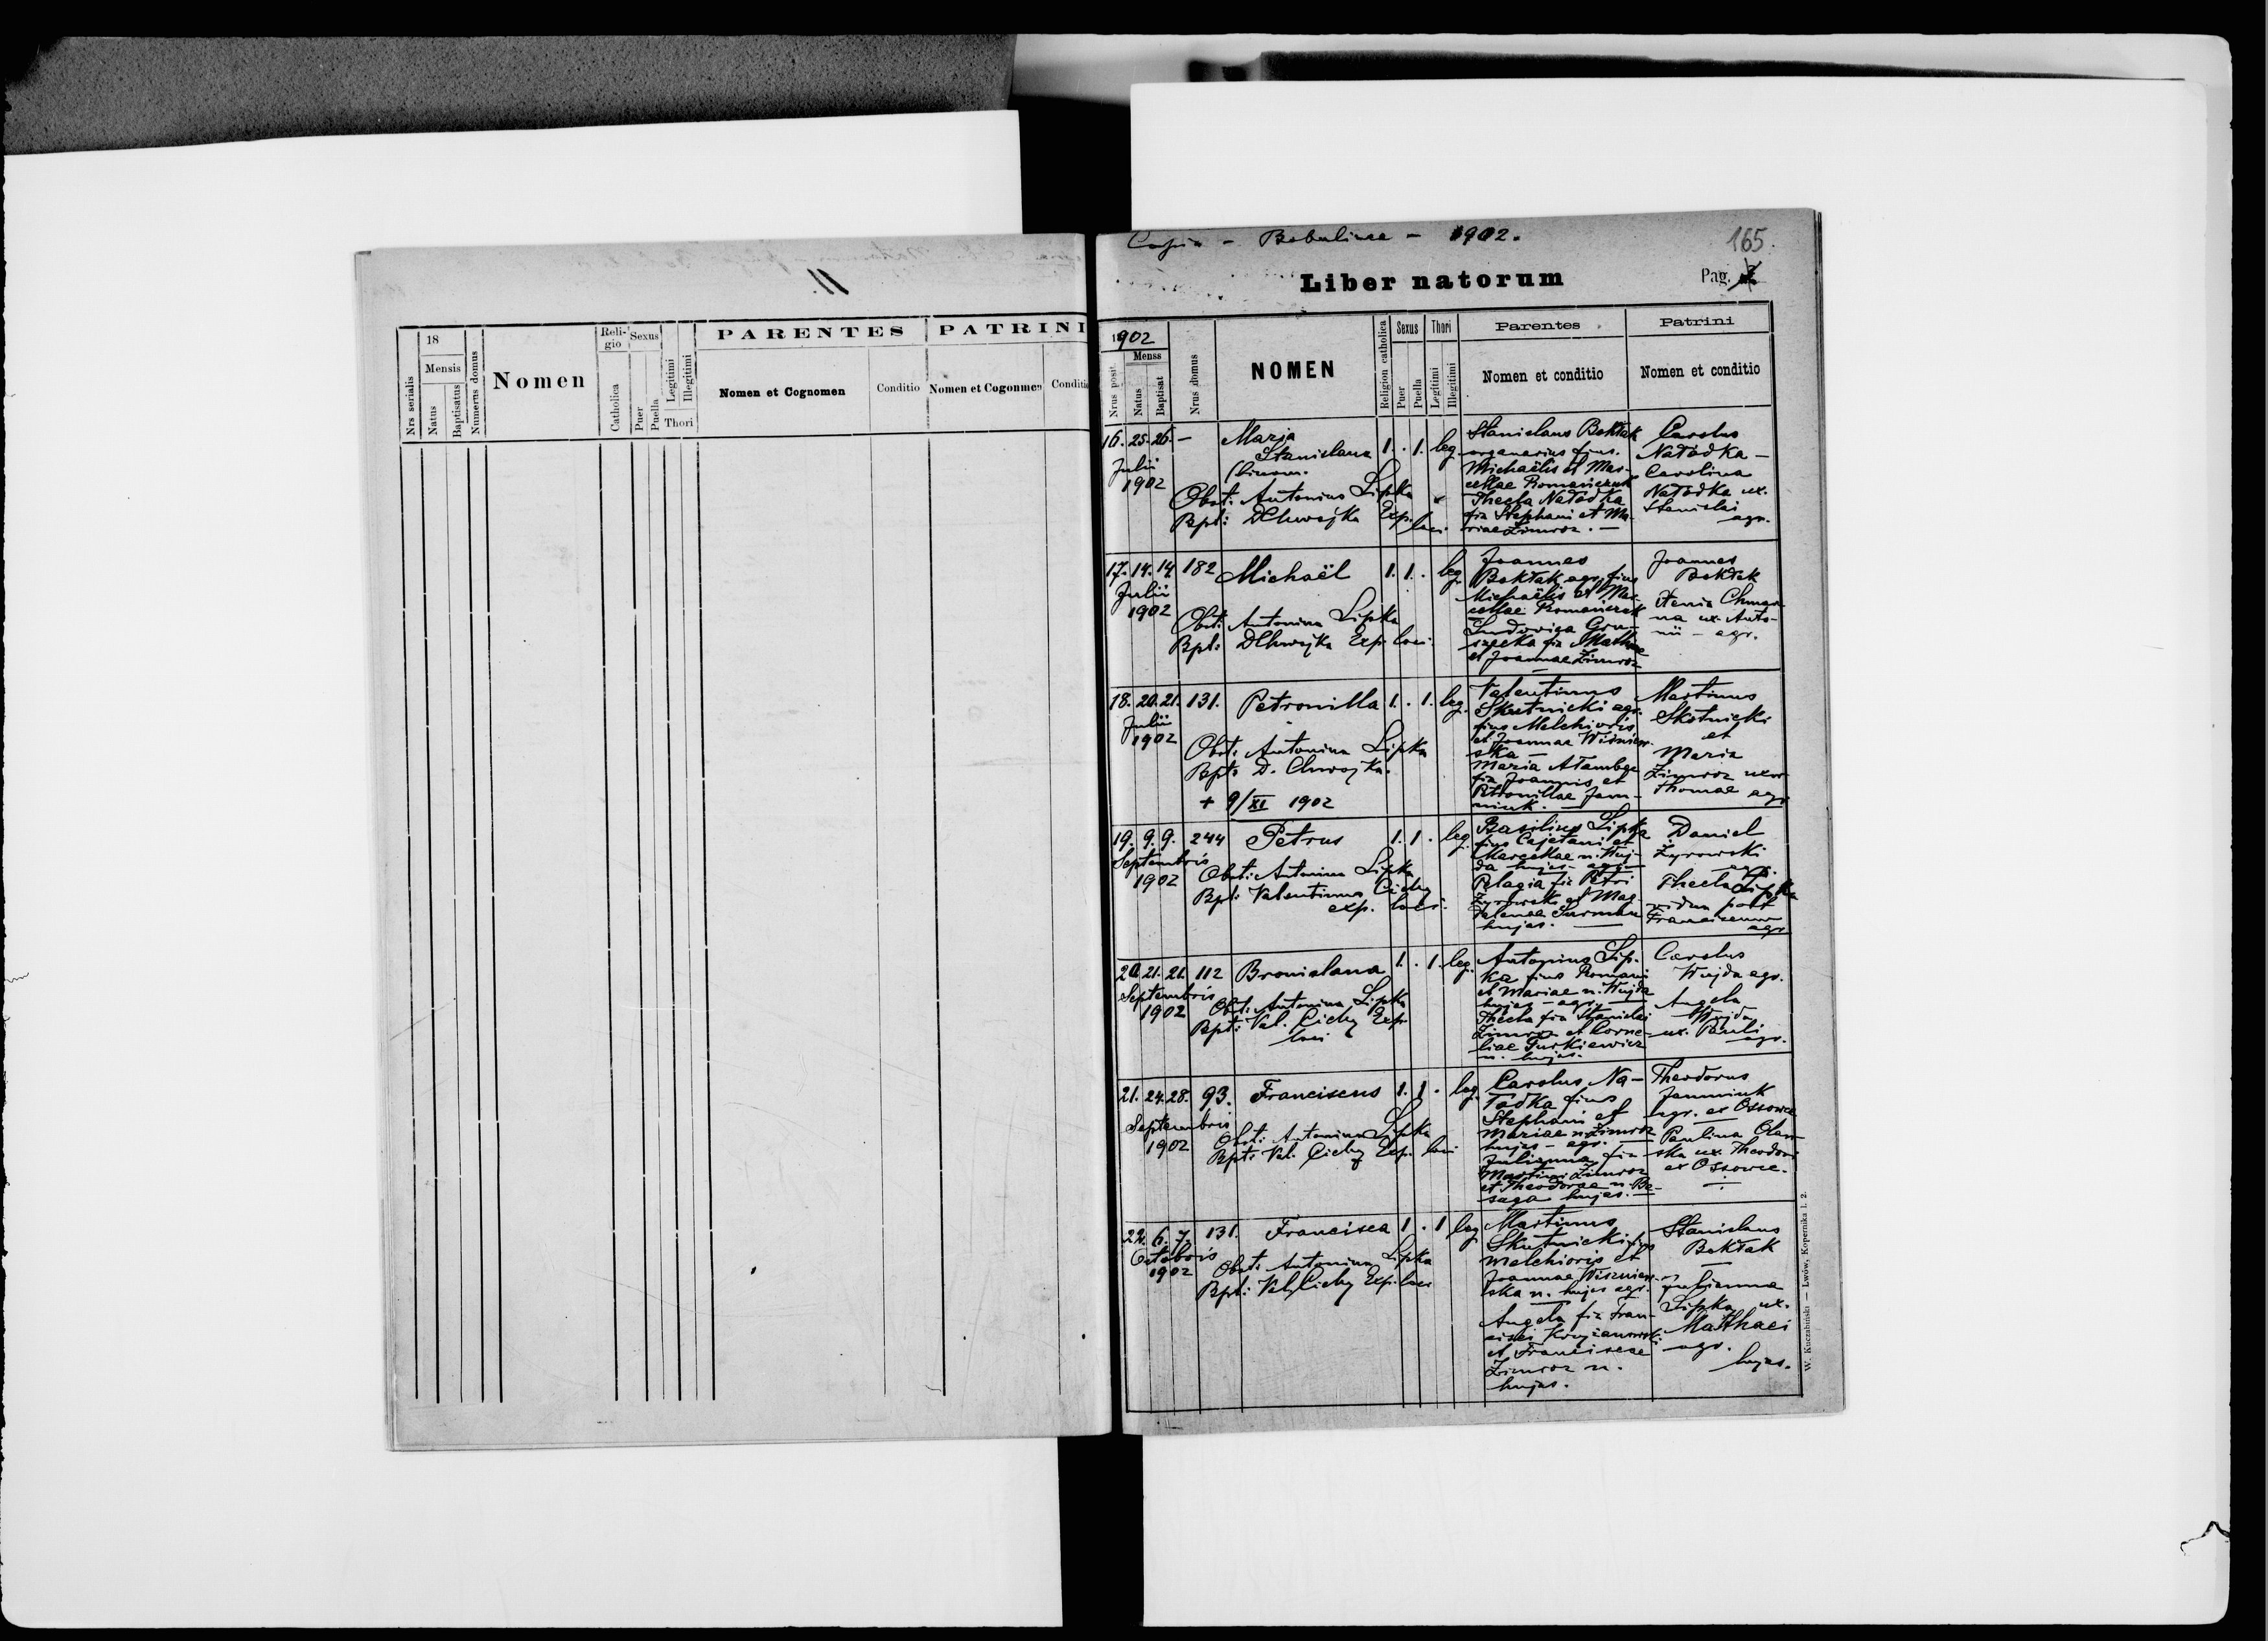 11.
18
Mensis
Nrs serialis
Natus
Baptisatus
Numerus domus
Nomen
Reli-
gio
Catholica
Sexus
Puer
Puella
Legitimi
Illegitimi
Thori
PARENTES
Nomen et Cognomen
Conditio
PATRINI
Nomen et Cogonmen
Conditio
Copia - Bobulince - 1902.
165.
Liber natorum
Pag.
1902
Menss
Nrus posit.
Natus
Baptisat
Nrus domus
NOMEN
Religion catholica
Sexus
Puer
Puella
Thori
Legitimi
Illegitimi
Parentes
Nomen et conditio
Patrini
Nomen et conditio
16. 25. 26. -
Julii
1902
Marja
Stanislava
(binom.
Obst: Antonina Lipka
Bpt: D Chwojka Exp.
loci.
1. . 1. leg.
Stanislaus Boktak
organarius fius.
Michaëlis et Mar-
cellae Romańczuk
Thecla Natodka
fia Stephani et Ma-
riae Zimroz. -
Carolus
Natodka -
Carolina
Natodka ux.
Stanislai
agr.
17. 14. 14. 182
Julii
1902
Michaël
Obst: Antonina Lipka
Bpt: D Chwojka Exp. loci.
1. 1. . leg.
Joannes
Boktak agr. fius
Michaëlis et Mar-
cellae Romańczuk
Ludovica Gru-
szecka fia
et Joannae Zimroz
Joannes
Boktak
Xenia
na ux. Anto-
nii - agr.
18. 20. 21. 131.
Julii
1902
Petronilla
Obst: Antonina Lipka
Bpt: D. Chwojka.
+ 9/XI 1902
1. . 1. leg.
Valentinus
Skutnicki agr.
fius Melchioris
et Joannae Wiśniew-
ska -
Maria
fia Joannis et
Petronillae Jam-
niuk. -
Martinus
Skotnicki
et
Maria
Zimroz uxor
Thomae agr.
19. 9. 9. 244
Septembris
1902
Petrus
Obst: Antonina Lipka
Bpt: Valentinus Cichy
exp. loci.
1. 1. . leg.
Basilius Lipka
fius Cajetani et
Marcellae n. Wuj-
da hujas - agr.
Pelagia fia Petri
Żyrowski et Mag-
dalenae
hujas. -
Daniel
Żyrowski
agr.
Thecla Lipka
vidua post
Franciscum
agr.
20. 21. 21. 112
Septembris
1902
Bronislava
Obst: Antonina Lipka
Bpt: Val. Cichy Exp.
loci
1. . 1. leg.
Antonius Lip-
ka fius Romani
et Mariae n. Wujda
hujas - agr. -
Thecla fia Stanislai
Zimroz et Corne-
liae Turkiewicz
n. hujas.
Carolus
Wujda agr.
Angela
Wujda
ux. Pauli
agr.
21. 24. 28. 93.
Septembris
1902
Franciscus
Obst: Antonina Lipka
Bpt: Val. Cichy Exp. loci
1. 1. . leg.
Carolus Na-
todka fius
Stephani et
Mariae n. Zimroz
hujas - agr. -
Julianna fia
Martini Zimroz
et Theodorae n. Be-
saga hujas. -
Theodorus
Jamniuk
agr. ex Ossowce
Paulina Olen-
ska ux. Theodori
ex Ossowce.
22. 6. 7. 131.
Octobris
1902
Francisca
Obst: Antonina Lipka
Bpt: Val. Cichy Exp. loci
1 . 1 leg
Martinus
Skutnicki fius
Melchioris et
Joannae Wiśniew-
ska n. hujas agr.
Angela fia Fran-
cisci Krzyżanowski
et Franciscae
Zimroz n.
hujas.
Stanislaus
Boktak
-
Julianna
Lipka ux.
Matthaei
agr.
hujas.
W. Kuczabiński — Lwów, Kopernika l. 2.